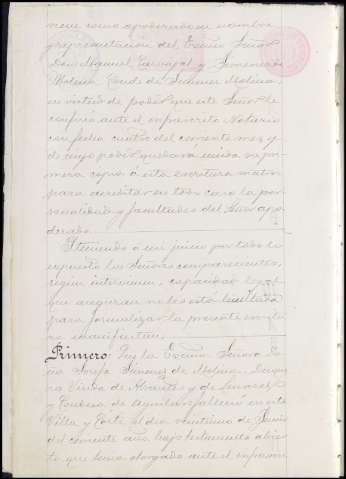 viene como apoderado en nombre
y representación del Excmo Señor
Don Manuel Carvajal y
Molina, Conde de Jimenez Molina,
en virtud de poder que este Señor le
confirió ante el infrascrito Notario
con fecha cuatro del corriente mes y
de cuyo poder quedará unida su pri-
mera copia á esta escritura matriz
para acreditar en todo caso la per-
sonalidad y facultades del Señor apo-
derado.
Y teniendo á mi juicio por todo lo
expuesto los Señores comparecientes,
según intervienen, capacidad legal
que aseguran no les está limitada
para formalizar la presente escritu-
ra manifiestan:
Primero: Que la Excma Señora Do-
ña Josefa Jimenez de Molina, Duque-
sa Viuda de Abrantes y de Linares
y Condesa de Aguilar falleció en esta
Villa y Corte el día veintiuno de Junio
del corriente año, bajo testamento abier-
to que tenía otorgado ante el infrascri